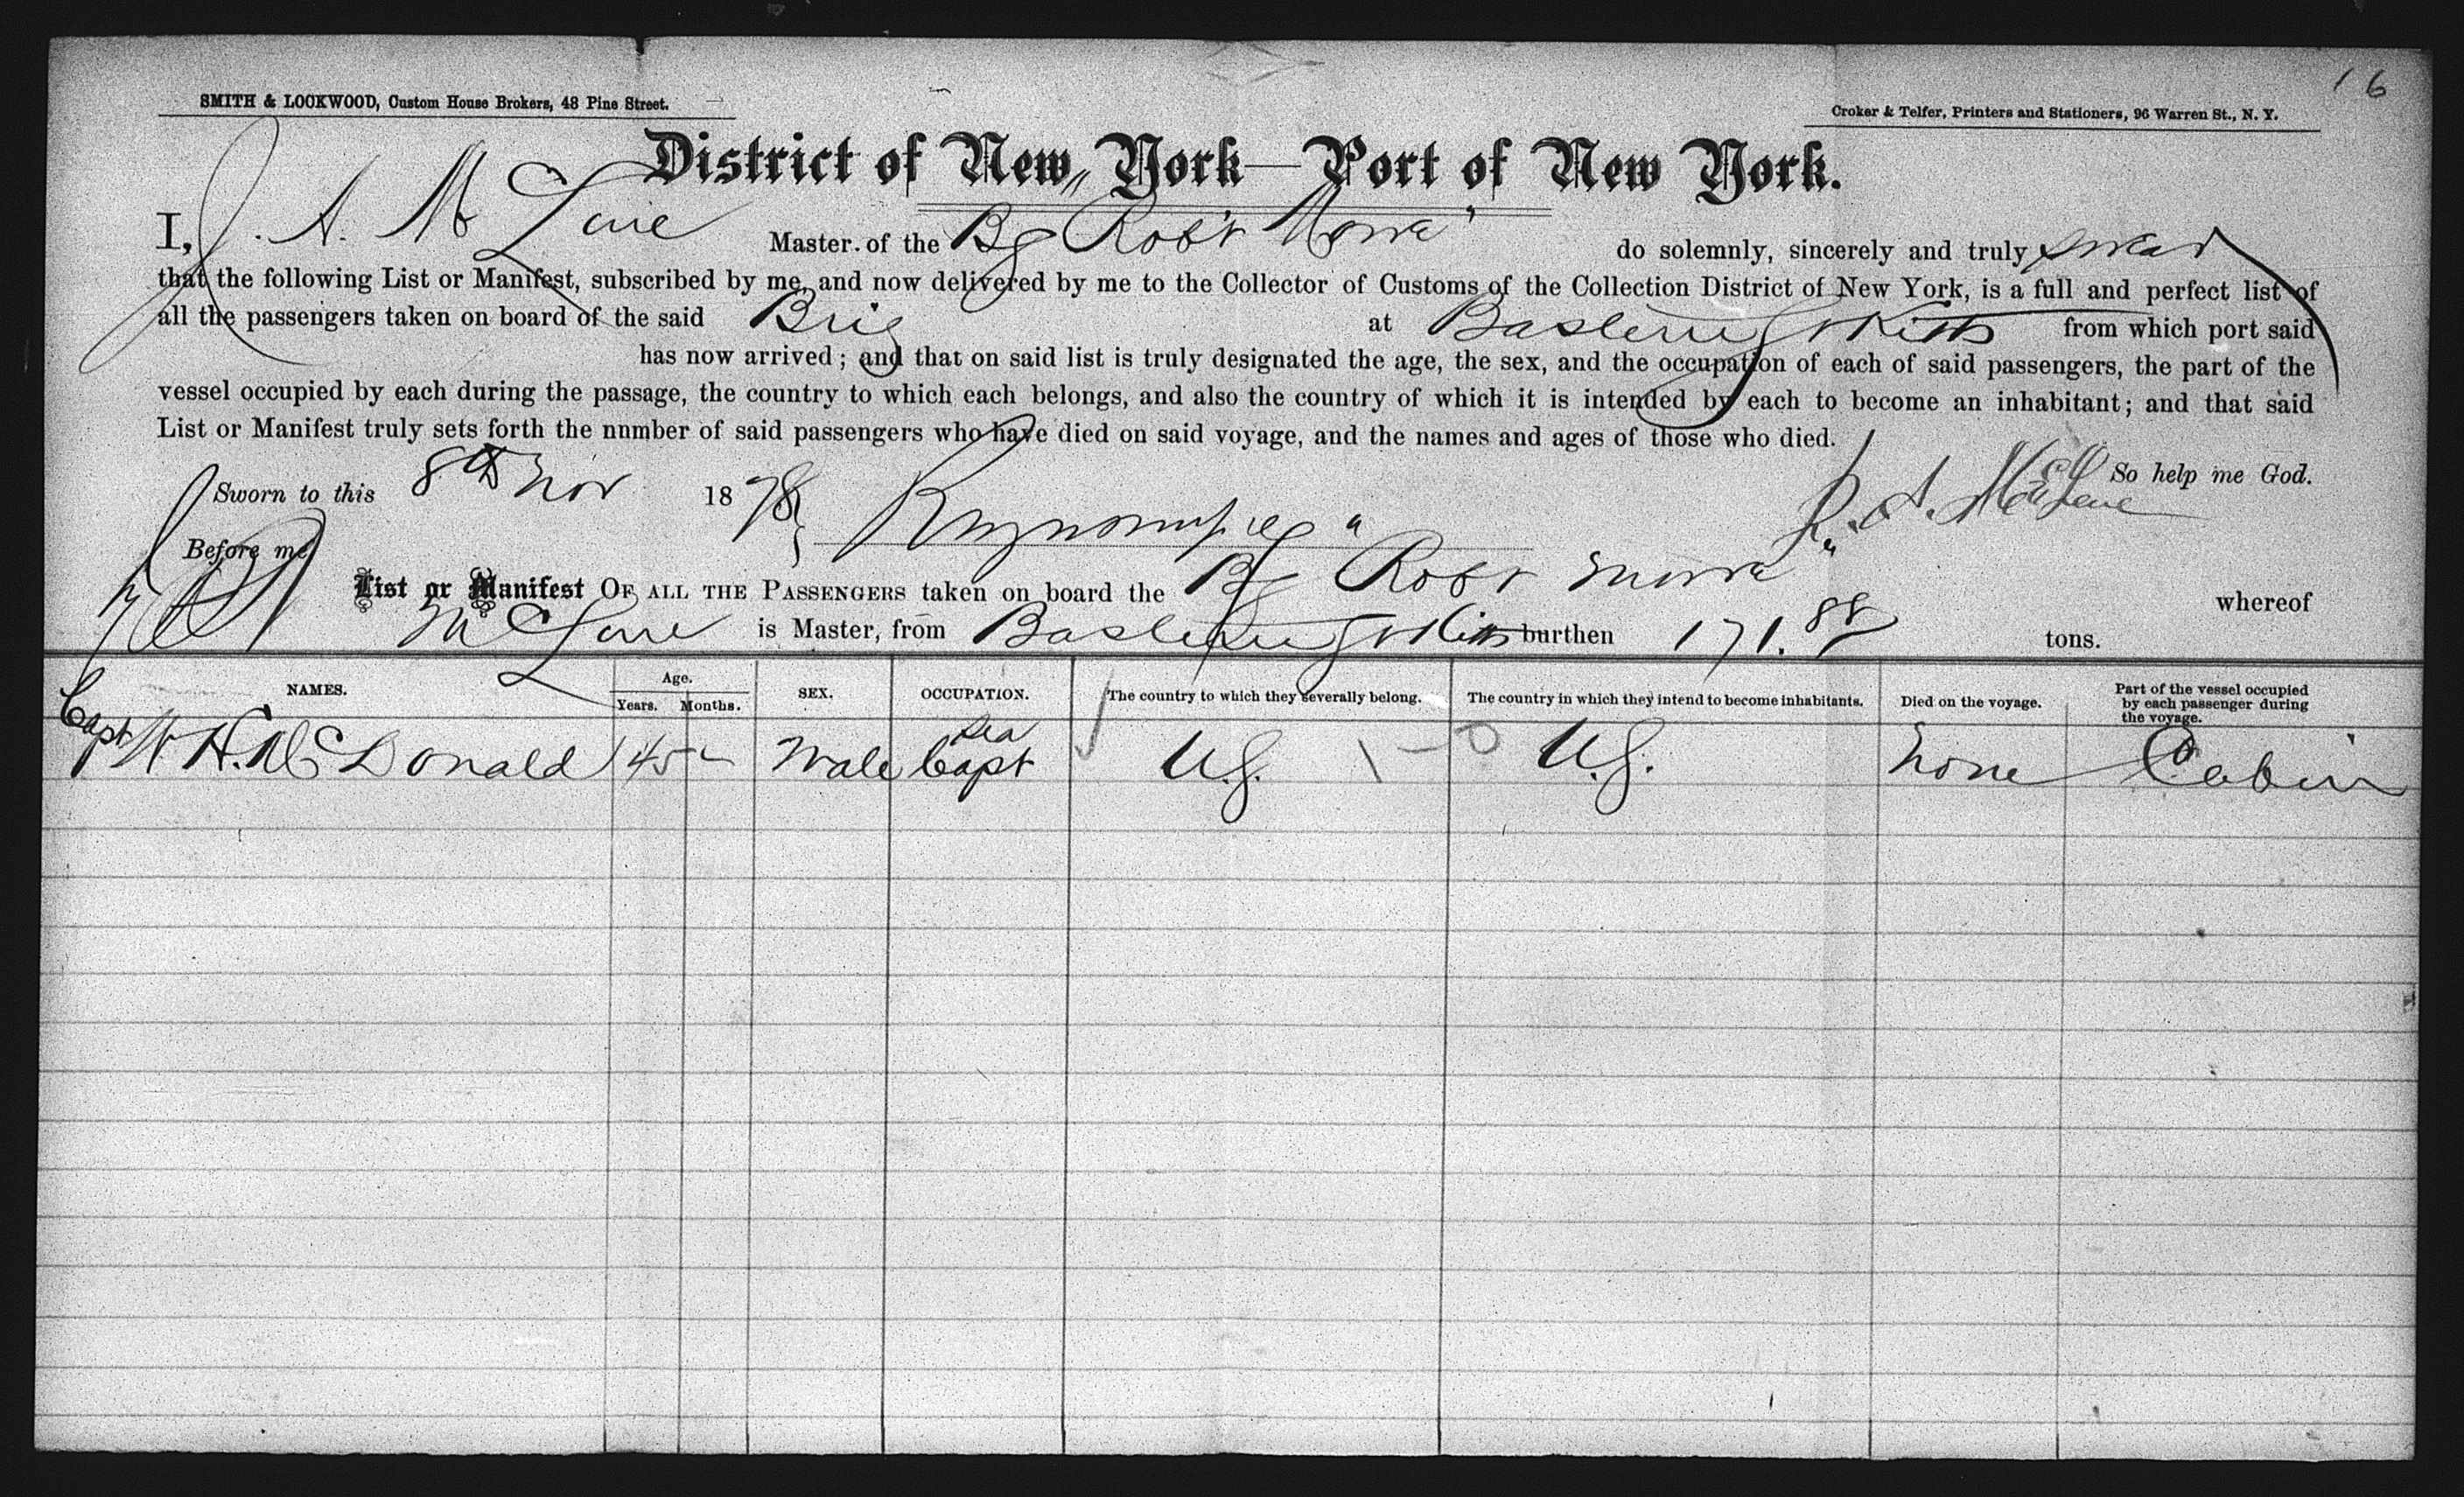 16
SMITH & LOCKWOOD, Custom House Brokers, 48 Pine Street.
Croker & Telfer, Printers and Stationers, 96 Warren St., N. Y.
District of New York—Port of New York.
I, J. A. Mc Master of the Bg "Robt do solemnly, sincerely and truly swear
that the following List or Manifest, subscribed by me, and now delivered by me to the Collector of Customs of the Collection District of New York, is a full and perfect list of
all the passengers taken on board of the said Brig at St Kitts from which port said
has now arrived; and that on said list is truly designated the age, the sex, and the occupation of each of said passengers, the part of the
vessel occupied by each during the passage, the country to which each belongs, and also the country of which it is intended by each to become an inhabitant; and that said
List or Manifest truly sets forth the nnmber of said passengers who have died on said voyage, and the names and ages of those who died.
So help me God.
Sworn to this 8th Nov 1878
Before me
List or Manifest OF ALL THE PASSENGERS taken on board the Bg "Robt whereof
is Master, from St Kitts burthen 171.88 tons.
NAMES. Age. Years. Months. SEX. OCCUPATION. The country to which they severally belong. The country in which they intend to become inhabitants. Died on the voyage. Part of the vessel occupied by each passenger during the voyage.
Capt W. H. McDonald 45 – Male Sea Capt U.S. U.S. None Cabin